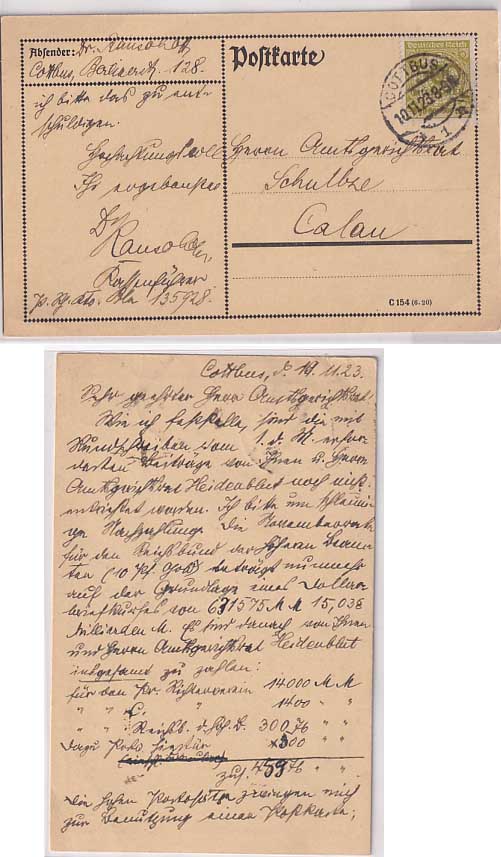 Absender: Dr. Ransohoff
Cottbus, Berlinerstr. 128.
ich bitte das zu ent-
schuldigen.
Hochachtungsvoll
Ihr ergebenster
Dr
Kassenführer
P. Sch. Kto. Bln 135928.
Postkarte
Deutsches Reich
COTTBUS
10.11.23.
1
Herrn Amtsgerichtsrat
Schultze
Calau
C 154 (6. 20)
Cottbus, d. 19. 11. 23.
Sehr geehrter Herr Amtsgerichtsrat
Wie ich feststelle, sind die mit
Rundschreiben vom 1. d. M. erfor-
derten Beiträge von Ihnen u. Herrn
Amtsgerichtsrat Heidenblut noch nicht
entrichtet worden. Ich bitte um schleuni-
ge Nachzahlung. Die Novemberrate
für den Reichsbund der höhern Beam-
ten (10 Pf. Gold) beträgt nunmehr
auf der Grundlage eines Dollar-
briefkurses von 631575 M M 15,038
Milliarden M. Es sind danach von Ihnen
und Herrn Amtsgerichtsrat Heidenblut
insgesamt zu zahlen:
für den Pr. Richterverein 14000 M M
" " 1400 " "
" " Reichsb. d. h. B. 30076 " "
dazu Porto hierfür 300 " "
zus. 45976 " "
Die hohen Portosätze zwingen mich
zur Benutzung einer Postkarte;